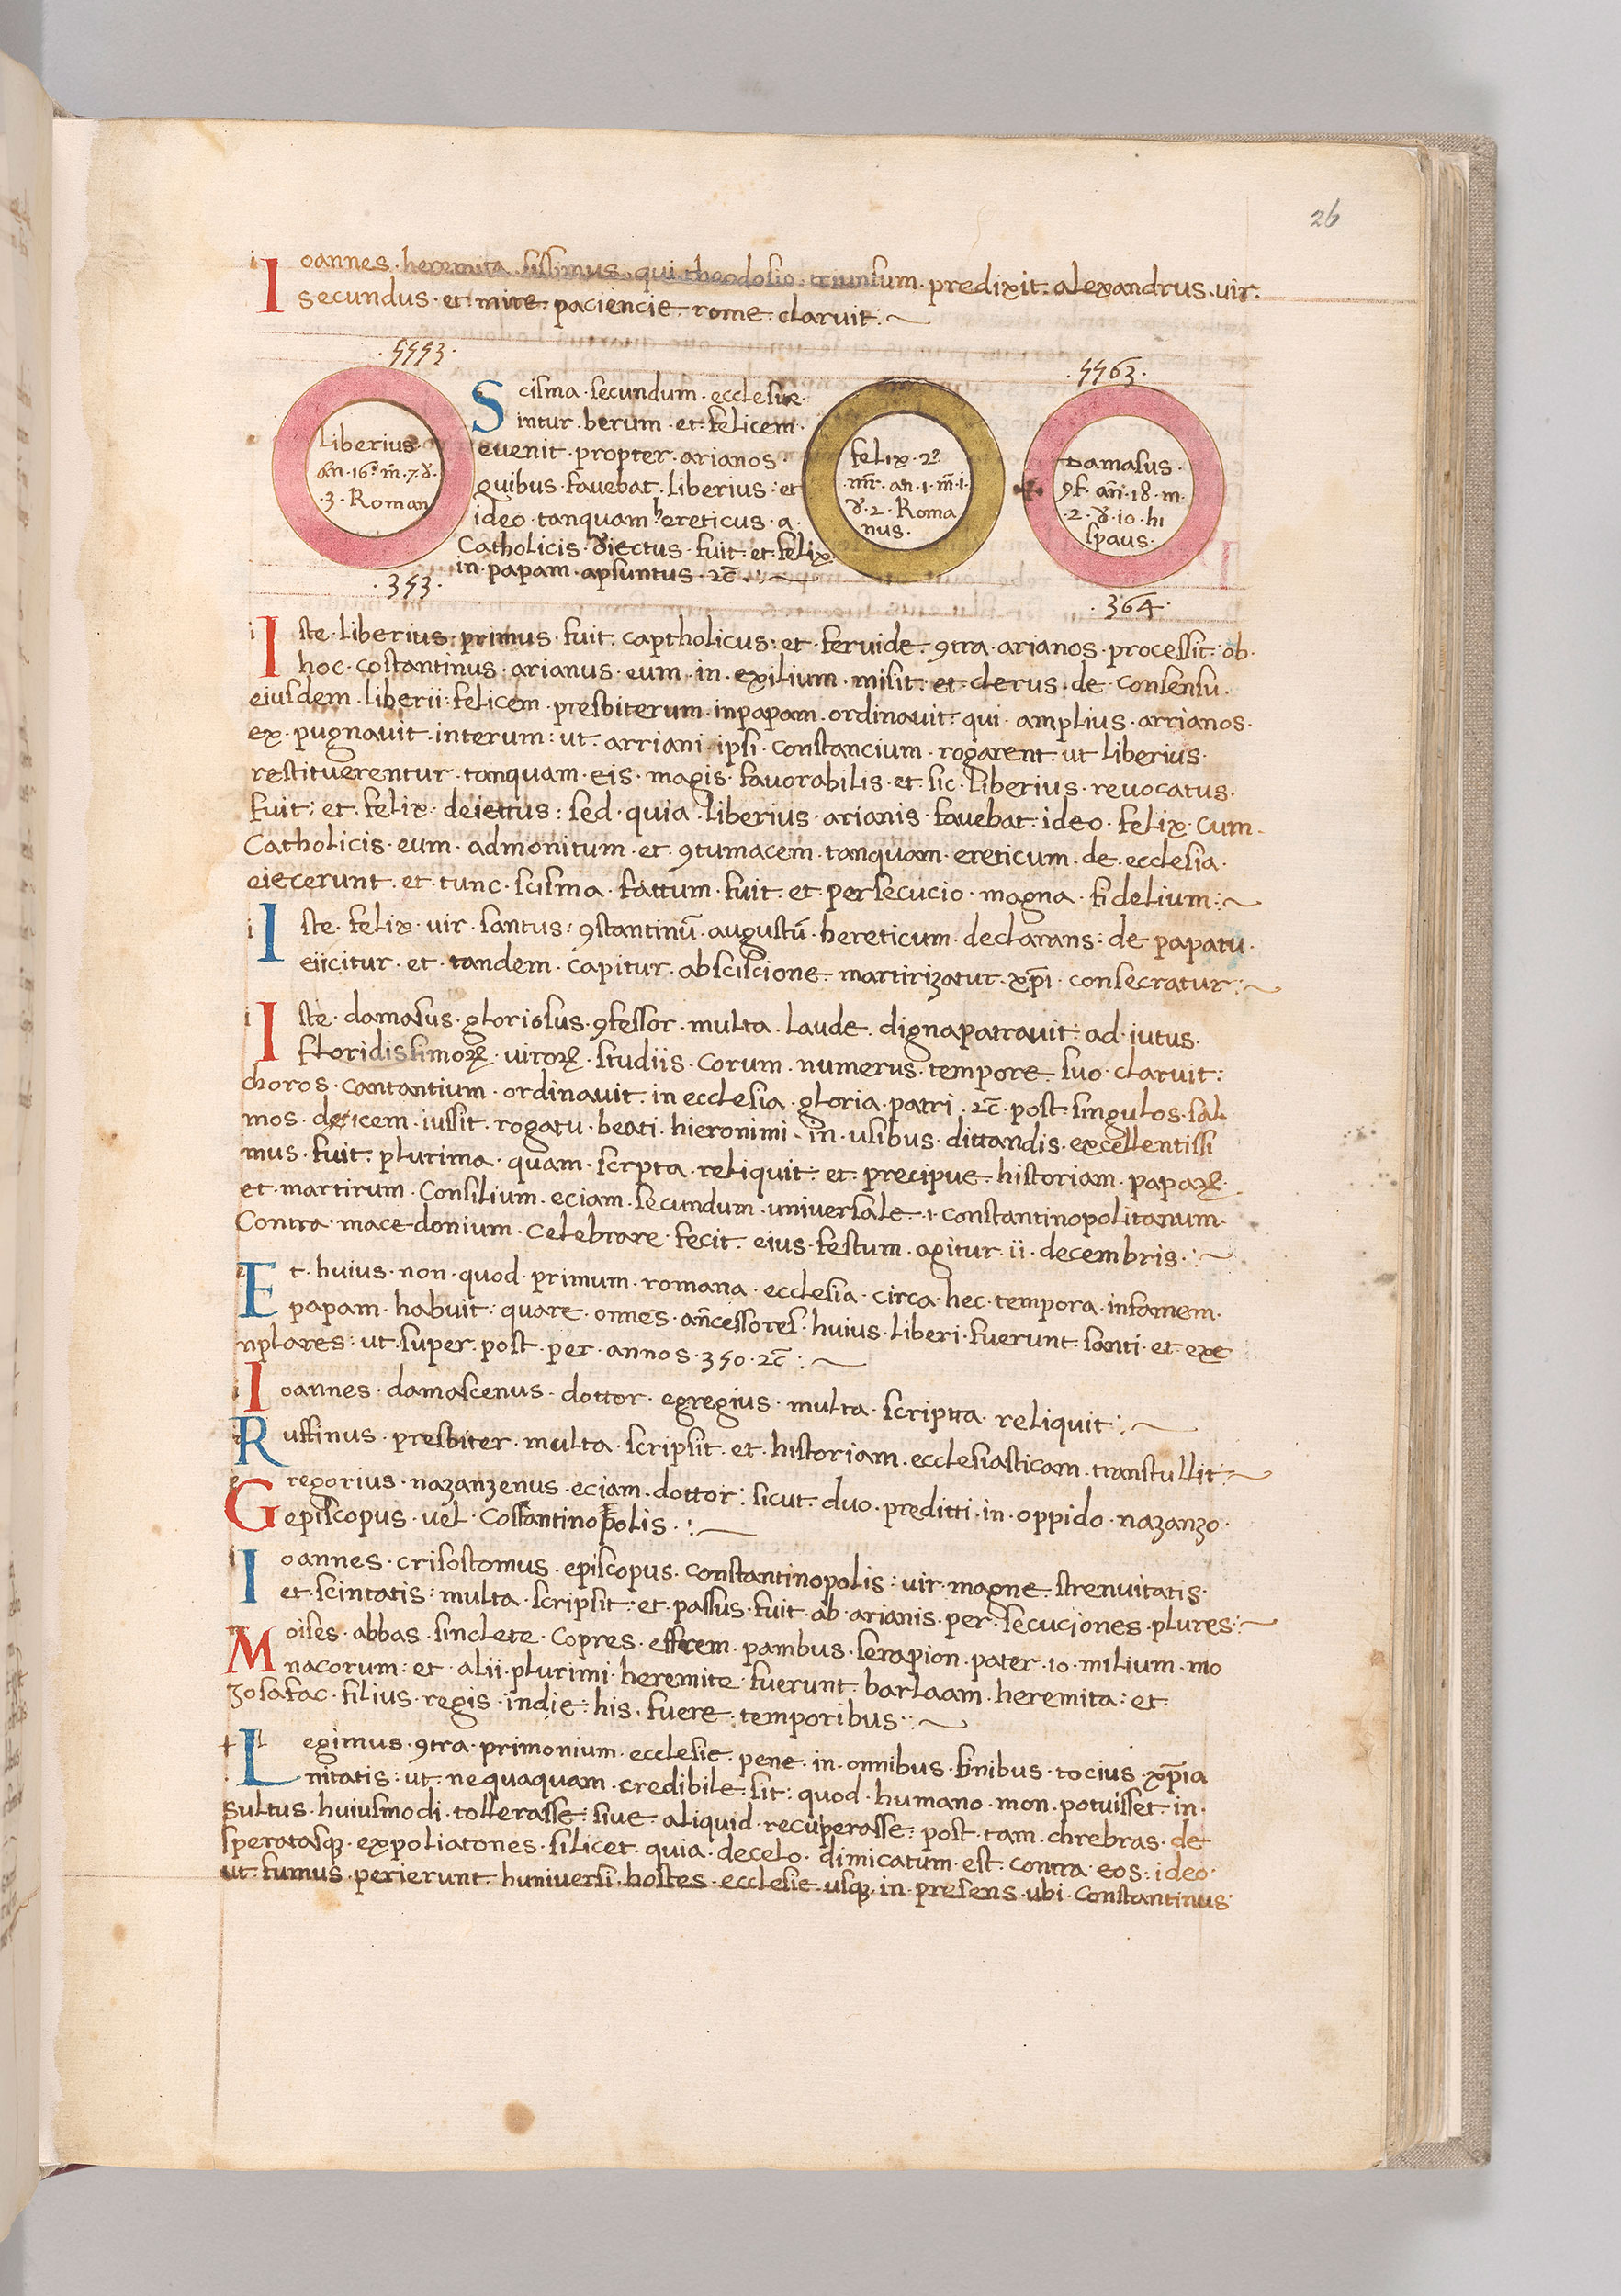 26
Ioannes · heremita · sissimus · qui · theodosio · triunfum · predixit · alexandrus · vir ·
secundus · et · mire · paciencie · rome · claruit :~
· 5553 ·
· 5563 ·
Liberius ·
An̄ · 16 · m̄ · 7 · d ·
· 3 · Roman
Scisma · secundum · ecclesie ·
intur · berum · et · felicem ·
evenit · propter · arianos ·
quibus · favebat · liberius : et
ideo · tanquam hereticus · a ·
Catholicis · diectus · fuit · et · felix
in · papam · asuntus · ⁊c̄ · :~
felix · 2º
· mr̄ · an̄ · 1 · m̄ · i ·
d · 2 · Roma
nus ·
Damasus ·
ꝯf · an̄ · 18 · m ·
· 2 · d · 10 · hi
spaus ·
· 353 ·
· 364 ·
Iste · liberius · primus · fuit · captholicus : et · feruide · ꝯtra · arianos · processit · ob ·
hoc · costantinus · arianus · eum · in · exilium · misit : et · clerus · de · consensu ·
eiusdem · liberii · felicem · presbiterum · inpapam · ordinavit · qui · amplius · arrianos ·
ex · pugnavit · interum : ut · arriani · ipsi · constancium · rogarent · ut liberius ·
restituerentur · tanquam · eis · magis · favorabilis · et · sic · liberius · revocatus ·
fuit : et · felix · deiettus : sed · quia · liberius · arianis · favebat · ideo · felix · cum ·
Catholicis · eum · admonitum · et · ꝯtumacem · tanquam · ereticum · de · ecclesia ·
eiecerunt · et · tunc · scisma · fattum · fuit · et · persecucio · magna · fidelium :~
Iste · felix · vir · santus : ꝯstantinū · augustū · hereticum · declarans : de papatu ·
eiicitur · et · tandem · capitur · absciscione · martirizatur · xp̄i · consecratur :~
Iste · damasus · gloriosus · ꝯfessor · multa · laude · dignapatravit : ad · iutus ·
floridissimoꝝ · viroꝝ · studiis · corum · numerus · tempore · suo · claruit :
choros · cantantium · ordinavit · in ecclesia · gloria · patri · ⁊c̄ · post · singulos · sal ·
mos · dicem · iussit · rogatu · beati · hieronimi · in · usibus · dittandis · excellentissi
mus · fuit · plurima · quam · scrpta · reliquit · et · precipue · historiam · papaꝝ ·
et · martirum · Consilium · eciam · secundum · universale · i · constantinopolitanum ·
Contra · macedonium · celebrare · fecit · eius · festum · agitur · ii · decembris · :~
Et · huius · non · quod · primum · romana · ecclesia · circa · hec · tempora · infamem ·
papam · habuit : quare · onnes · an̄cessores · huius · liberi · fuerunt · santi · et · exe
nplares : ut · super · post · per · annos · 350 · ⁊c̄ :~
Ioannes · damascenus · dottor · egregius · multa · scriptta · reliquit :~
Ruffinus · presbiter · multa · scripsit · et · historiam · ecclesiasticam · transtullit :~
Gregorius · nazanzenus · eciam · dottor : sicut · duo · preditti · in · oppido · nazanzo ·
episcopus · vel · Costantinopolis · :~
Ioannes · crisostomus · episcopus · constantinopolis : vir · magne · strenuitatis ·
et · scintatis : multa · scripsit : et · passus · fuit · ab · arianis · per · secuciones · plures :~
Moises · abbas · sinclete · copres · effrem · pambus · serapion · pater · 10 · milium · mo
nacorum : et · alii · plurimi · heremite · fuerunt · barlaam · heremita : et ·
Josafac · filius · regis · indie : his · fuere · temporibus · :~
Legimus · ꝯtra · primonium · ecclesie · pene · in · onnibus · finibus · tocius · xp̄ia
nitatis : ut · nequaquam · credibile · sit : quod · humano · mon · potuisset · in ·
sultus · huiusmodi · tollerasse : sive · aliquid · recuperasse : post · tam · chrebras · de
speratasqꝫ · expoliatones · silicet · quia · decelo · dimicatum · est · contra · eos : ideo ·
ut · fumus · perierunt · huniversi · hostes · ecclesie · usqꝫ · in · presens · ubi · constantinus